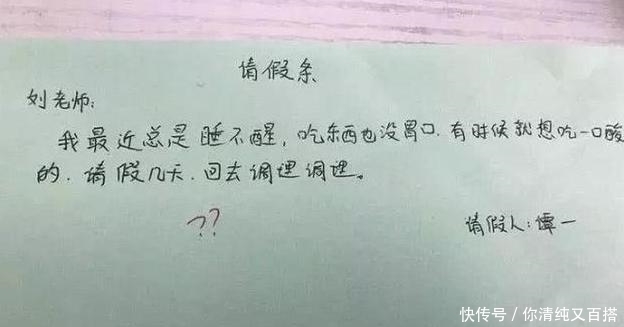 请假条
刘老师:
我最近总是睡不醒,吃东西也没胃口.有时候就想吃一口酸
的.请假几天.回去调理调理。
??
请假人:谭一
快传号/你清纯又百搭